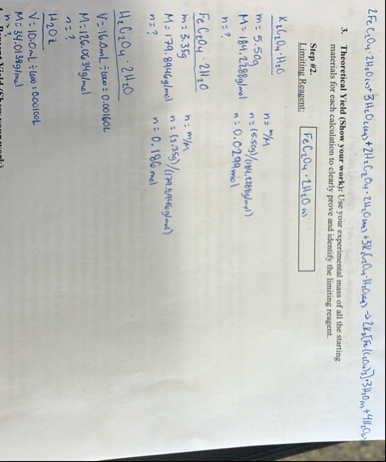 2FeC₂O₄·2H₂O(s)+3H₂O₂(aq)+2H₂C₂O₄·2H₂O(aq)+3K₂C₂O₄·H₂O(aq) → 2K₃[Fe(C₂O₄)₃]·3H₂O(s)+4H₂O(l)
3. Theoretical Yield (Show your work): Use your experimental mass of all the starting
materials for each calculation to clearly prove and identify the limiting reagent.
Step #2.
Limiting Reagent: FeC₂O₄·2H₂O(s)
K₂C₂O₄·H₂O
m = 5.50g n = m/M
M = 184.2288g/mol n = (5.50g)/(184.2288g/mol)
n = ? n = 0.0299mol
FeC₂O₄·2H₂O
m = 3.35g n = m/M
M = 179.8946g/mol n = (3.35g)/(179.8946g/mol)
n = ? n = 0.186mol
H₂C₂O₄·2H₂O
V = 16.0mL ÷ 1000 = 0.0016L
M = 126.0654g/mol
n = ?
H₂O₂
V = 10.0mL ÷ 1000 = 0.00100L
M = 34.0138g/mol
n = ?